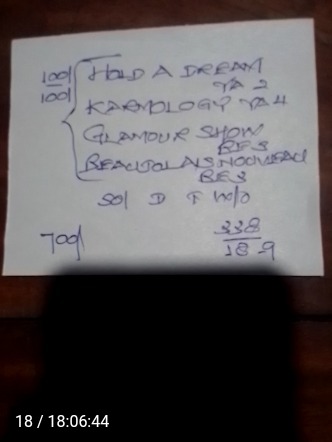 100/ HOLD A DREAM
100/ YA 2
KARMOLOGY YA 4
GLAMOUR SHOW
BE 3
BEAUJOLAIS NOUVEAU
BE 3
50/ D F W/O
700/ 338
18 9
18 / 18:06:44